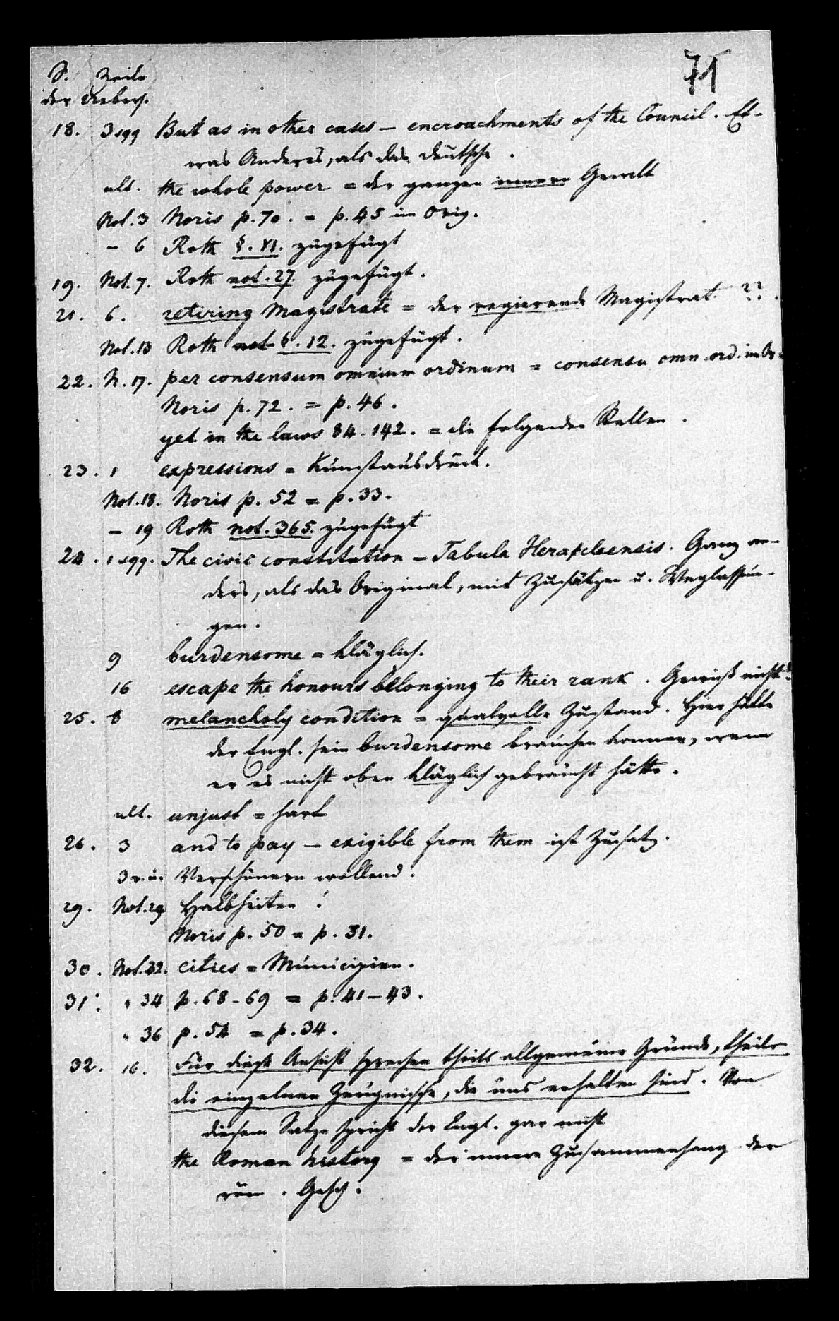 71
S. Zeile
der Uebers.
18. 3 sqq But as in other cases – encroachments of the Council. Et-
was Anderes, als das Deutsche.
ult. the whole power = der ganzen innern Gewalt
Not. 3 Noris p. 70. = p. 45 im Orig.
– 6 Roth §. VI. zugefügt
19. Not. 7. Roth not. 27. zugefügt.
21. 6. retiring Magistrate = der regierende Magistrat ??.
Not. 13 Roth not. 12. zugefügt.
22. N. 17. per consensum omnium ordinum = consensu omn. ord. im Or.
Noris p. 72. = p. 46.
yet in the laws 84. 142. = die folgenden Stellen.
23. 1 expressions = Kunstausdruck.
Not. 18. Noris p. 52 = p. 33.
– 19 Roth not. 365. zugefügt
24. 1 sqq. The civic constitution – Tabula Heracleensis. Ganz an-
ders, als das Original, mit Zusätzen u. Weglassun-
gen.
9 burdensome = kläglich.
16 escape the honours belonging to their rank. Gewiß nicht!
25. 8 melancholy condition = qualvolle Zustand. Hier hätte
der Engl. sein burdensome brauchen können, wenn
er es nicht oben kläglich gebraucht hätte.
ult. unjust = hart
26. 3 and to pay – exigible from them ist Zusatz.
3 v. u. Verschönern wollend.
29. Not. 29 Halbheiten!
Noris p. 50 = p. 31.
30. Not. 32. cities = Municipien.
31. " 34 p. 68–69 = p. 41–43.
" 36 p. 54 = p. 34.
32. 16. Für diese Ansicht sprechen theils allgemeine Gründe, theils
die einzelnen Zeugnisse, die uns erhalten sind. Von
diesem Satze spricht der Engl. gar nicht
the Roman history = der innere Zusammenhang der
röm. Gesch.